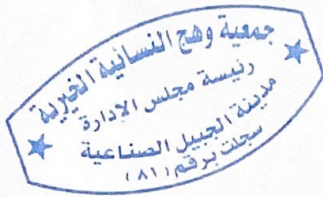 جمعية وهج النسائية الخيرية
رئيسة مجلس الإدارة
مدينة الجبيل الصناعية
سجلت برقم (٨١)